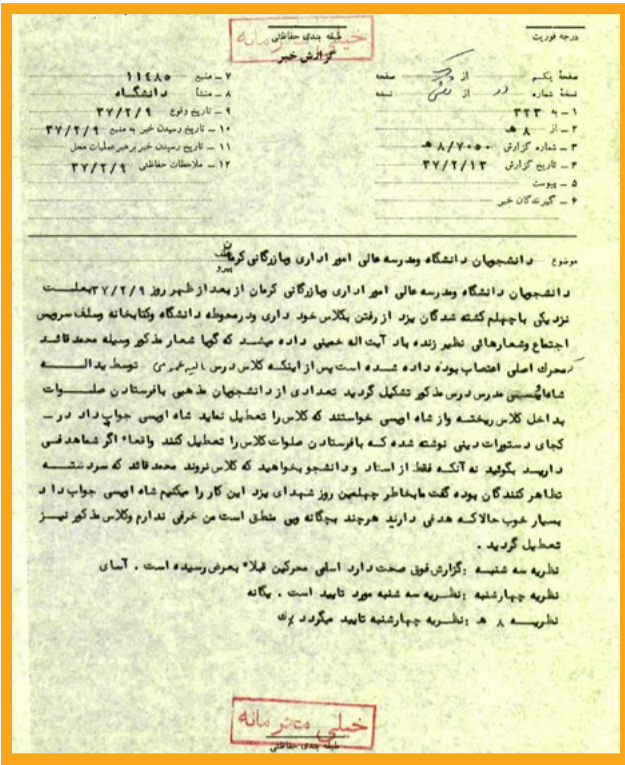 درجه فوریت
طبقه بندی حفاظتی
خیلی محرمانه
گزارش خبر
صفحهٔ یکم از یک صفحه
نسخهٔ شماره دو از نسخه
۱ ـ به ۳۲۳
۲ ـ از ۸ هـ
۳ ـ شماره گزارش ۸/۷۰۵۰ هـ
۴ ـ تاریخ گزارش ۳۷/۲/۱۳
۵ ـ پیوست
۶ ـ گیرندگان خبر
۷ ـ منبع ۱۱۴۸۵
۸ ـ منشأ دانشگاه
۹ ـ تاریخ وقوع ۳۷/۲/۹
۱۰ ـ تاریخ رسیدن خبر به منبع ۳۷/۲/۹
۱۱ ـ تاریخ رسیدن خبر برهبر عملیات محل
۱۲ ـ ملاحظات حفاظتی ۳۷/۲/۹
موضوع دانشجویان دانشگاه ومدرسه عالی امور اداری وبازرگانی کرمان
پیرو
دانشجویان دانشگاه ومدرسه عالی امور اداری وبازرگانی کرمان از بعد از ظهر روز ۳۷/۲/۹ بعلت
نزدیکی با چهلم کشته شدگان یزد از رفتن بکلاس خود داری ودرمحوطه دانشگاه وکتابخانه وسلف سرویس
اجتماع وشعارهائی نظیر زنده باد آیت اله خمینی داده میشد که گویا شعار مذکور وسیله محمد قائد
محرک اصلی اعتصاب بوده داده شده است پس از اینکه کلاس درس توسط یداله
شاه اویسی مدرس درس مذکور تشکیل گردید تعدادی از دانشجویان مذهبی بافرستادن صلوات
بداخل کلاس ریخته واز شاه اویسی خواستند که کلاس را تعطیل نماید شاه اویسی جواب داد در ـ
کجای دستورات دینی نوشته شده که بافرستادن صلوات کلاس را تعطیل کنند واقعاً اگر شما هدفی
دارید بگوئید نه آنکه فقط از استاد ودانشجو بخواهید که کلاس نروند محمد قائد که سردسته
تظاهر کنندگان بوده گفت ما بخاطر چهلمین روز شهدای یزد این کار را میکنیم شاه اویسی جواب داد
بسیار خوب حالا که هدفی دارید هرچند بچگانه وبی منطق است من حرفی ندارم وکلاس مذکور نیز
تعطیل گردید .
نظریه سه شنبه : گزارش فوق صحت دارد اسامی محرکین قبلاً بعرض رسیده است . آسای
نظریه چهارشنبه : نظریه سه شنبه مورد تایید است . یگانه
نظریه ۸ هـ : نظریه چهارشنبه تایید میگردد
خیلی محرمانه
طبقه بندی حفاظتی